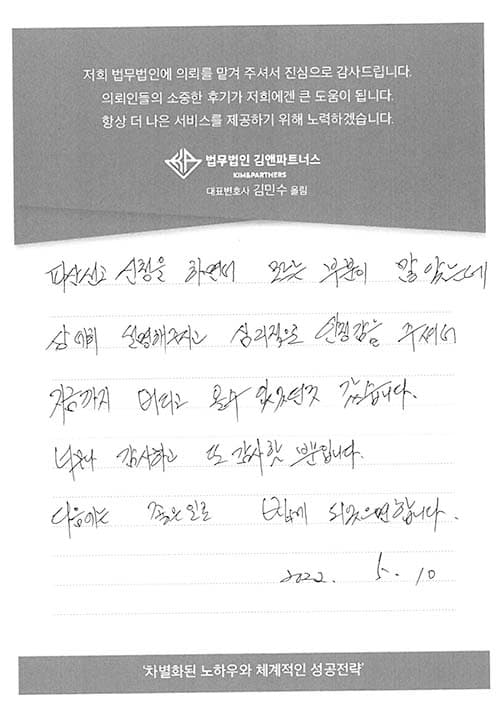 저희 법무법인에 의뢰를 맡겨 주셔서 진심으로 감사드립니다.
의뢰인들의 소중한 후기가 저희에겐 큰 도움이 됩니다.
항상 더 나은 서비스를 제공하기 위해 노력하겠습니다.
법무법인 김앤파트너스
KIM&PARTNERS
대표변호사 김민수 올림
파산선고 신청을 하면서 모르는 부분이 많았는데
상세히 설명해주시고 심리적으로 안정감을 주셔서
지금까지 버티고 올수 있었던것 같습니다.
너무나 감사하고 또 감사할 뿐입니다.
다음에는 좋은일로 되었으면합니다.
2022. 5. 10
'차별화된 노하우와 체계적인 성공전략'